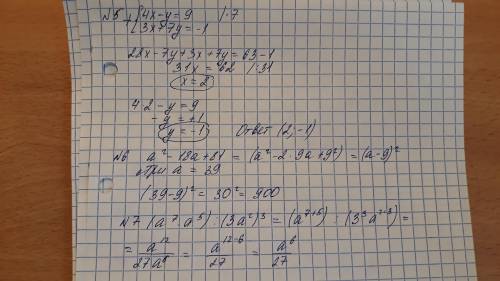 №5 + { 4x - y = 9 | ·7
{ 3x + 7y = -1
28x - 7y + 3x + 7y = 63 - 1
31x = 62 | :31
x = 2
4·2 - y = 9
-y = +1
y = -1 Ответ (2; -1)
№6 a² - 18a + 81 = (a² - 2·9a + 9²) = (a - 9)²
при a = 39
(39 - 9)² = 30² = 900
№7 (a⁷ · a⁵) : (3a²)³ = (a⁷⁺⁵) : (3³ a²·³) =
= a¹²/27a⁶ = a¹²⁻⁶/27 = a⁶/27